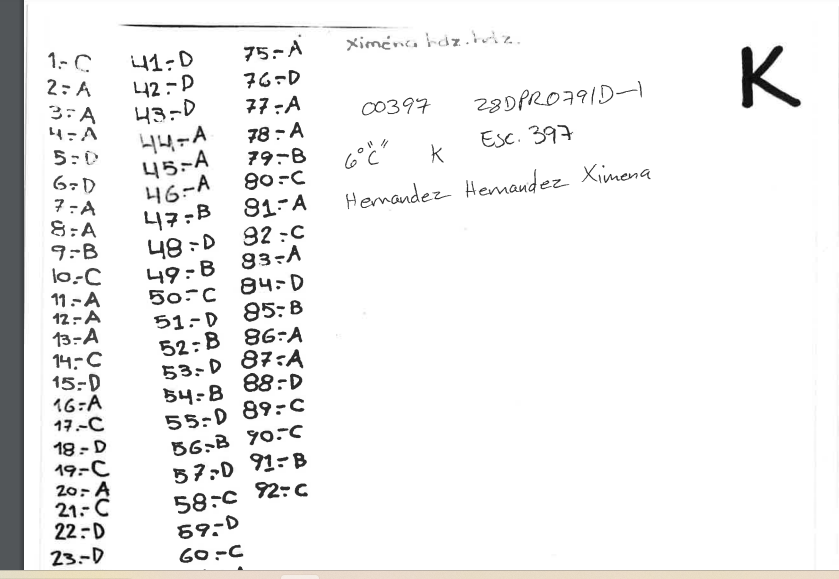 1.- C
2.- A
3.- A
4.- A
5.- D
6.- D
7.- A
8.- A
9.- B
10.- C
11.- A
12.- A
13.- A
14.- C
15.- D
16.- A
17.- C
18.- D
19.- C
20.- A
21.- C
22.- D
23.- D
41.- D
42.- D
43.- D
44.- A
45.- A
46.- A
47.- B
48.- D
49.- B
50.- C
51.- D
52.- B
53.- D
54.- B
55.- D
56.- B
57.- D
58.- C
59.- D
60.- C
75.- A
76.- D
77.- A
78.- A
79.- B
80.- C
81.- A
82.- C
83.- A
84.- D
85.- B
86.- A
87.- A
88.- D
89.- C
90.- C
91.- B
92.- C
Xiména hdz. hdz.
00397 28DPR0791D-1
Esc. 397
6° "C" K
Hernandez Hernandez Ximena
K